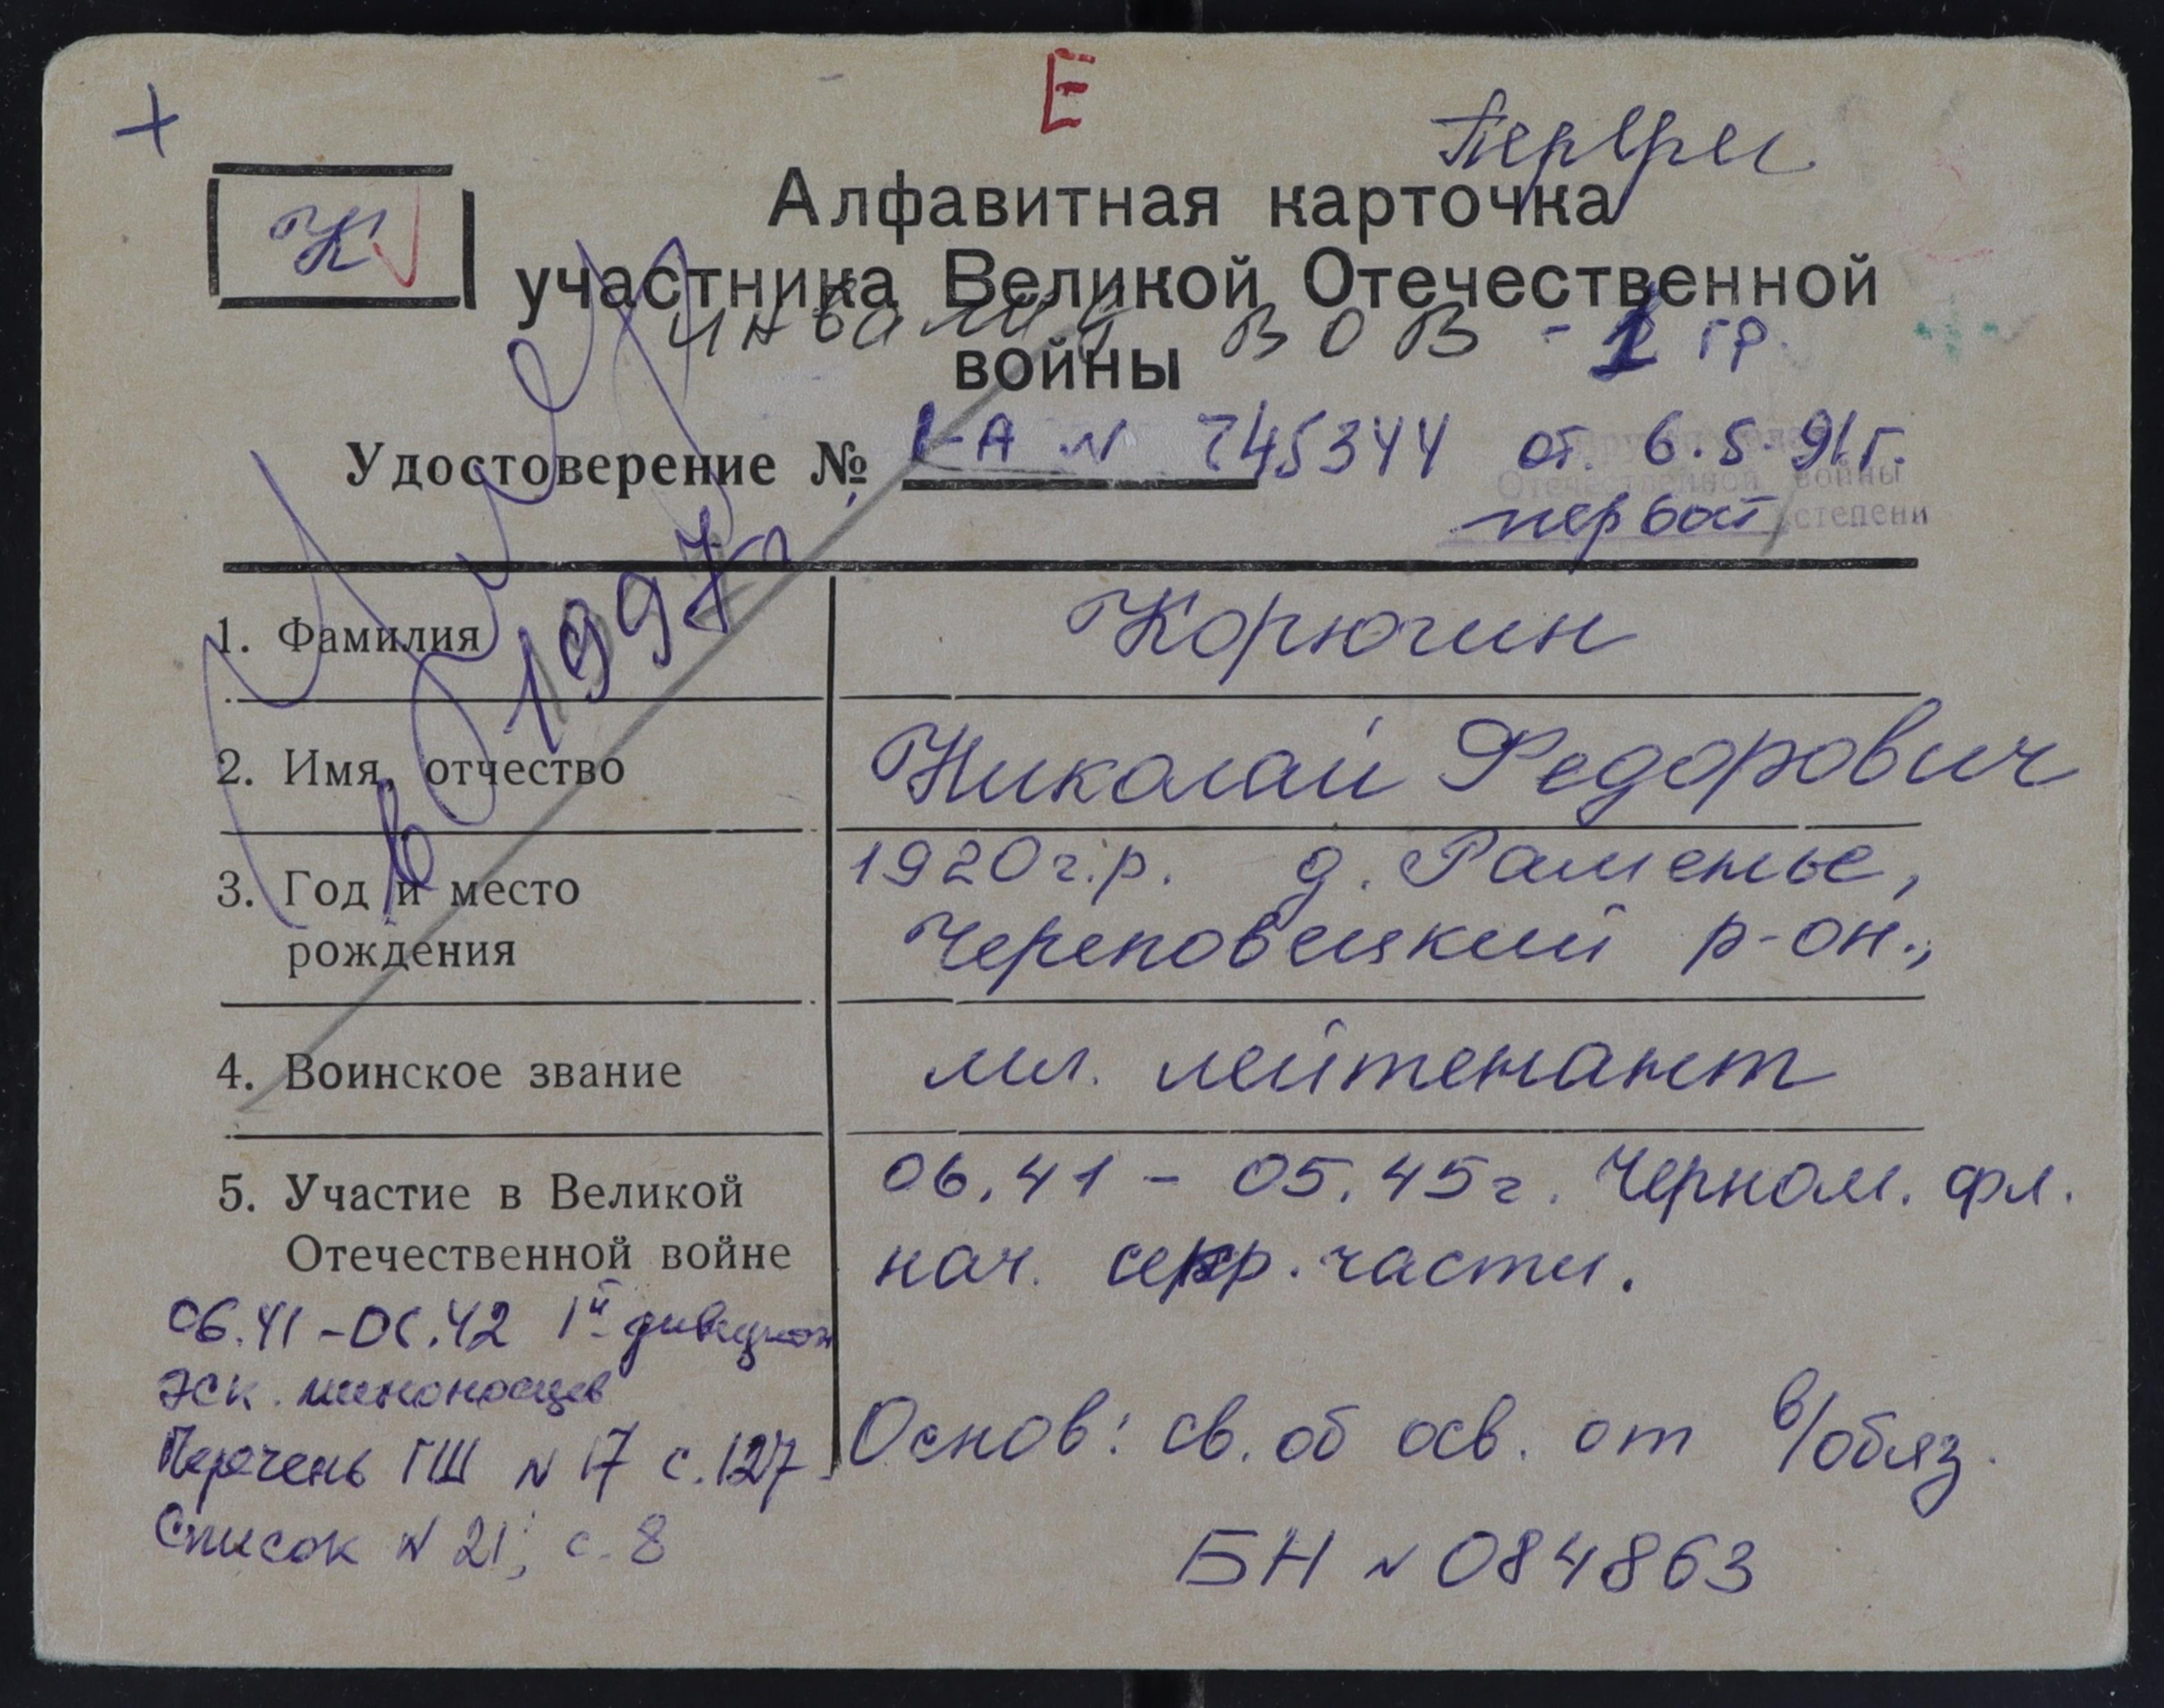 Е
К
Алфавитная карточка
участника Великой Отечественной
инвалид ВОВ - 1 гр.
войны
Удостоверение № 1-А N 745344 от. 6.5.91г.
Отечественной войны
первой степени
Умер
в 1997г
1. Фамилия Корюгин
2. Имя, отчество Николай Федорович
3. Год и место рождения 1920г.р. д. Раменье,
Череповецкий р-он.,
4. Воинское звание мл. лейтенант
5. Участие в Великой Отечественной войне 06.41 - 05.45г. Черном. фл.
нач. секр. части.
06.41-06.42 1й дивизион
эск. миноносцев
Перечень ГШ N 17 с.127
Список N 21, с. 8
Основ: св. об осв. от в/обяз.
БН N 084863